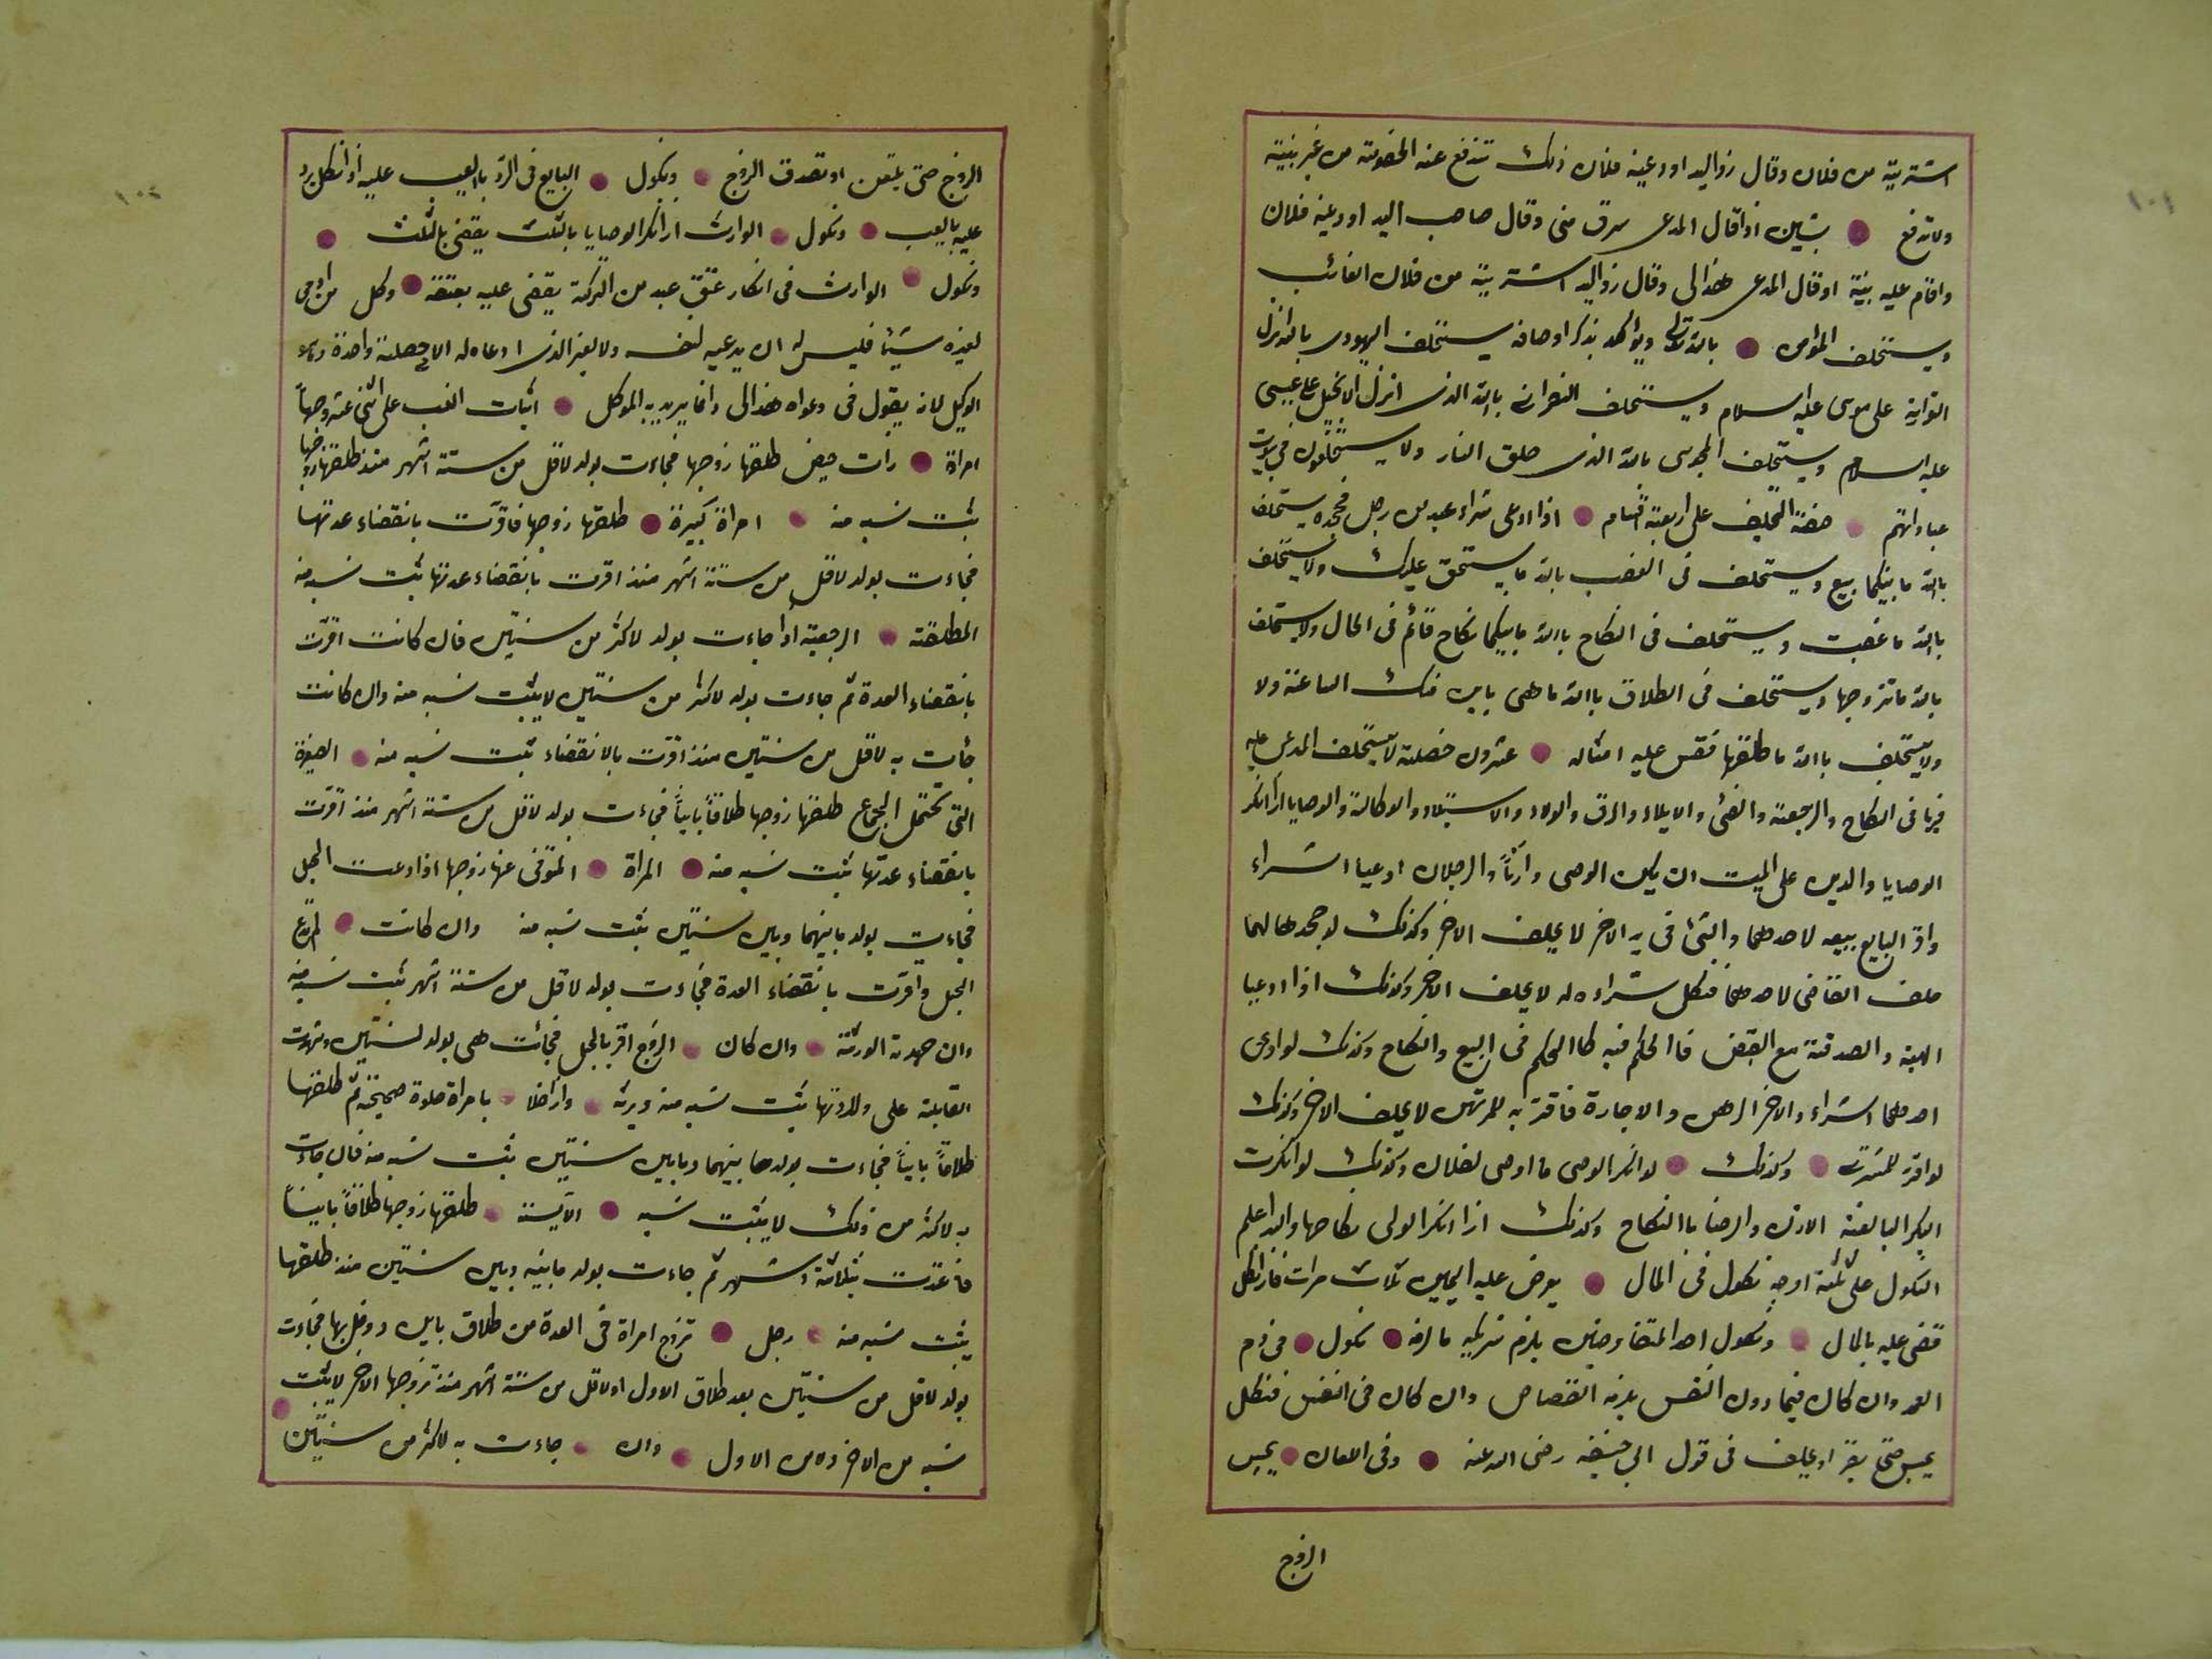 اشتريته من فلان وقال ذواليد اودعنيه فلان ذلك تندفع عنه الخصومة من غير بينة
ولا تدفع بشيئين اذا قال المدعى سرق منى وقال صاحب اليد اودعنيه فلان
واقام عليه بينة او قال المدعى هذا لى وقال ذواليد اشتريته من فلان الغائب
ويستحلف بالله تعالى ويؤكد بذكر اوصافه يستحلف اليهودى بالله انزل
التوراية على موسى عليه السلام ويستحلف النصرانى بالله الذى انزل الانجيل على عيسى
عليه السلام ويستحلف المجوسى بالله الذى خلق النار ولا يستحلفون فى بيوت
عباداتهم صفة التحليف على اربعة اقسام اذا ادعى شراء عبد من رجل فجحده يستحلف
بالله ما بينكما بيع ويستحلف فى الغصب بالله ما يستحق عليك ولا يستحلف
بالله ما غصبت ويستحلف فى النكاح باالله ما بينكما نكاح قائم فى الحال ولا يستحلف
بالله ما تزوجها ويستحلف فى الطلاق باالله ما هى باين منك الساعة ولا
ولا يستحلف باالله ما طلقها فقس عليه امثاله عشرون خصلة لا يستحلف المدعى عليه
فيها فى النكاح والرجعة والفئ والايلاء والرق والولاء والاستيلاد والوكالة والوصايا اذا انكر
الوصايا والدين على الميت ان يكن الوصى وارثاً والرجلان ادعيا اشراء
واقر البايع ببيعه لاحدهما والشئ فى يد الاخر لا يحلف الاخر وكذلك لو جحدهما لهما
حلف القاضى لاحدهما فنكل شراءه له لا يحلف الاخر وكذلك اذا ادعيا
الهبة والصدقة مع القبض فاالحكم فيه كاالحكم فى البيع والنكاح وكذلك لو ادعى
احدهما اشراء والاخر الرهن والاجارة فاقر به للمرتهن لا يحلف الاخر وكذلك
لو اقر للمشترى وكذلك لو انكر الوصى ما اوصى لفلان وكذلك لو انكرت
البكر البالغة الاذن والرضا باالنكاح وكذلك اذا انكر الولى نكاحها والله اعلم
النكول على ثلثة اوجه نكول فى المال يعرض عليه اليمين ثلاث مرات فاذا نكل
قضى عليه بالمال ونكول احد المتفاوضين يلزم شريكه ما لزمه نكول فى دم
العمد وان كان فيما دون النفس يلزمه القصاص وان كان فى النفس فنكل
يحبس حتى يقر او يحلف فى قول ابى حنيفة رضى الله عنه وفى اللعان يحبس
الزوج
الزوج حتى يلتعن او تصدق الزوج ونكول البايع فى الرد باالعيب عليه اذا نكل يرد
عليه بالعيب ونكول الوارث اذا انكر الوصايا بالثلث يقضى بالثلث
ونكول الوارث فى انكار عتق عبد من التركة يقضى عليه بعتقه وكل من ادعى
لغيره شيئا فليس له ان يدعيه لنفسه ولا لغير الذى ادعاه له الا خصلة واحدة
الوكيل لانه يقول فى دعواه هذا لى وانما يريد به الموكل اثبات النسب على اثنى عشر وجهاً
امراة ذات حيض طلقها زوجها فجاءت بولد لاقل من ستة اشهر منذ طلقها زوجها
يثبت نسبه منه امراة كبيرة طلقها زوجها فاقرت بانقضاء عدتها
فجاءت بولد لاقل من ستة اشهر منذ اقرت بانقضاء عدتها ثبت نسبه منه
المطلقة الرجعية اذا جاءت بولد لاكثر من سنتين فان كانت اقرت
بانقضاء العدة ثم جاءت بولد لاكثر من سنتين لا يثبت نسبه منه وان كانت
جائت به لاقل من سنتين منذ اقرت بالانقضاء ثبت نسبه منه الصغيرة
التى تحتمل الجماع طلقها زوجها طلاقاً بايناً فجاءت بولد لاقل من ستة اشهر منذ اقرت
بانقضاء عدتها يثبت نسبه منه المراة المتوفى عنها زوجها اذا ادعت الحبل
فجاءت بولد ما بينهما وبين سنتين يثبت نسبه منه وان كانت لم تدع
الحبل واقرت بانقضاء العدة فجاءت بولد لاقل من ستة اشهر ثبت نسبه منه
وان جهدته الورثة وان كان الزوج اقر بالحبل فجائت هى بولد لسنتين وشهدت
القابلة على ولادتها يثبت نسبه منه ويرثه واذا خلا بامراة خلوة صحيحة ثم طلقها
طلاقاً بايناً فجاءت بولد ما بينهما وما بين سنتين يثبت نسبه منه فان جاءت
به لاكثر من ذلك لا يثبت نسبه الآيسة طلقها زوجها طلاقاً بايناً
فاعتدت بثلاثة اشهر ثم جاءت بولد ما بينه وبين سنتين منذ طلقها
يثبت نسبه منه رجل تزوج امراة فى العدة من طلاق باين ودخل بها فجاءت
بولد لاقل من سنتين بعد طلاق الاول او لاقل من ستة اشهر منذ تزوجها الاخر لا يثبت
نسبه من الاخر وه من الاول وان جاءت به لاكثر من سنتين